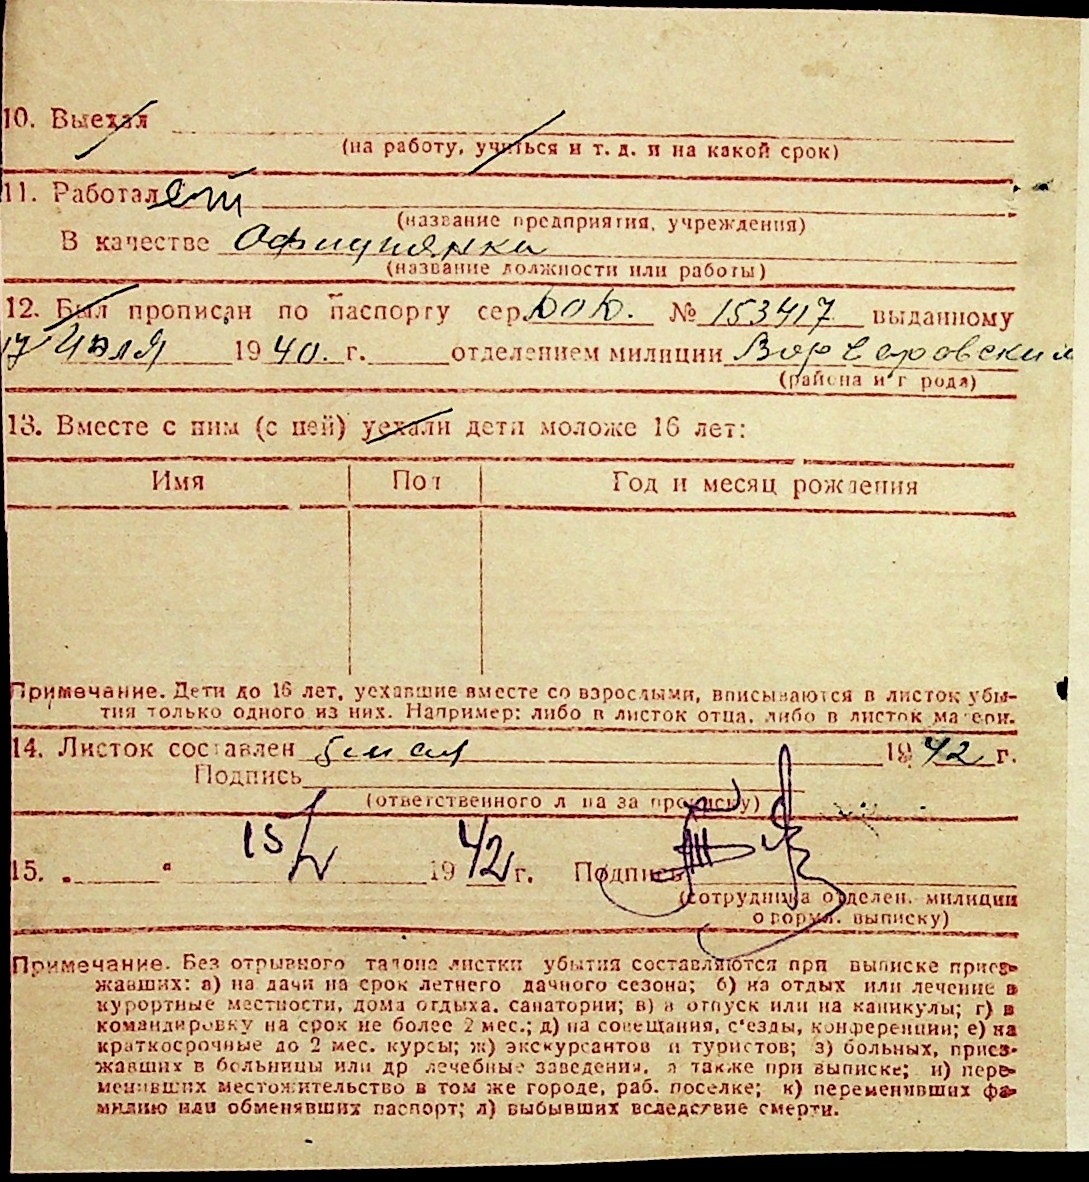 10. Выехал
(на работу, учиться и т. д. и на какой срок)
11. Работал
(название предприятия, учреждения)
В качестве Официантки
(название должности или работы)
12. Был прописан по паспорту сер. № 153417 выданному
17 Июля 1940 г. отделением милиции
(района и города)
13. Вместе с ним (с ней) уехали дети моложе 16 лет:
Имя Пол Год и месяц рождения
Примечание. Дети до 16 лет, уехавшие вместе со взрослыми, вписываются в листок убы-
тия только одного из них. Например: либо в листок отца, либо в листок матери.
14. Листок составлен 5 мая 1942 г.
Подпись
(ответственного лица за прописку)
15. „ “ 15/V 1942 г. Подпись
(сотрудника отделен. милиции
оформл. выписку)
Примечание. Без отрывного талона листки убытия составляются при выписке приез-
жавших: а) на дачи на срок летнего дачного сезона; б) на отдых или лечение в
курортные местности, дома отдыха, санатории; в) в отпуск или на каникулы; г) в
командировку на срок не более 2 мес.; д) на совещания, съезды, конференции; е) на
краткосрочные до 2 мес. курсы; ж) экскурсантов и туристов; з) больных, приез-
жавших в больницы или др лечебные заведения, а также при выписке; и) пере-
менивших местожительство в том же городе, раб. поселке; к) переменивших фа-
милию или обменявших паспорт; л) выбывших вследствие смерти.